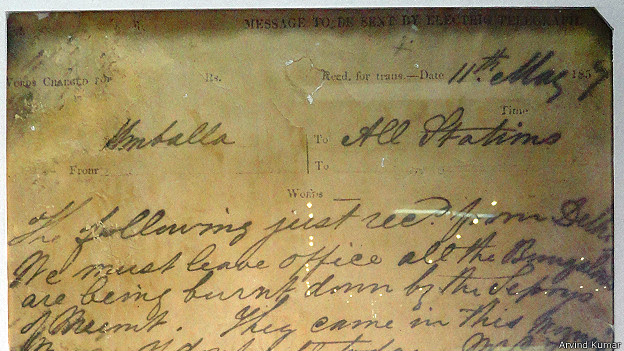 MESSAGE TO BE SENT BY ELECTRIC TELEGRAPH
WORDS CHARGED FOR Rs. Recd. for trans.—Date 11th May 1857
Time
From Umballa To All Stations
To
Words
The following just recd. from Delhi
We must leave office all the Bungalows
are being burnt down by the Sepoys
of Meerut. They came in this morning
Arvind Kumar